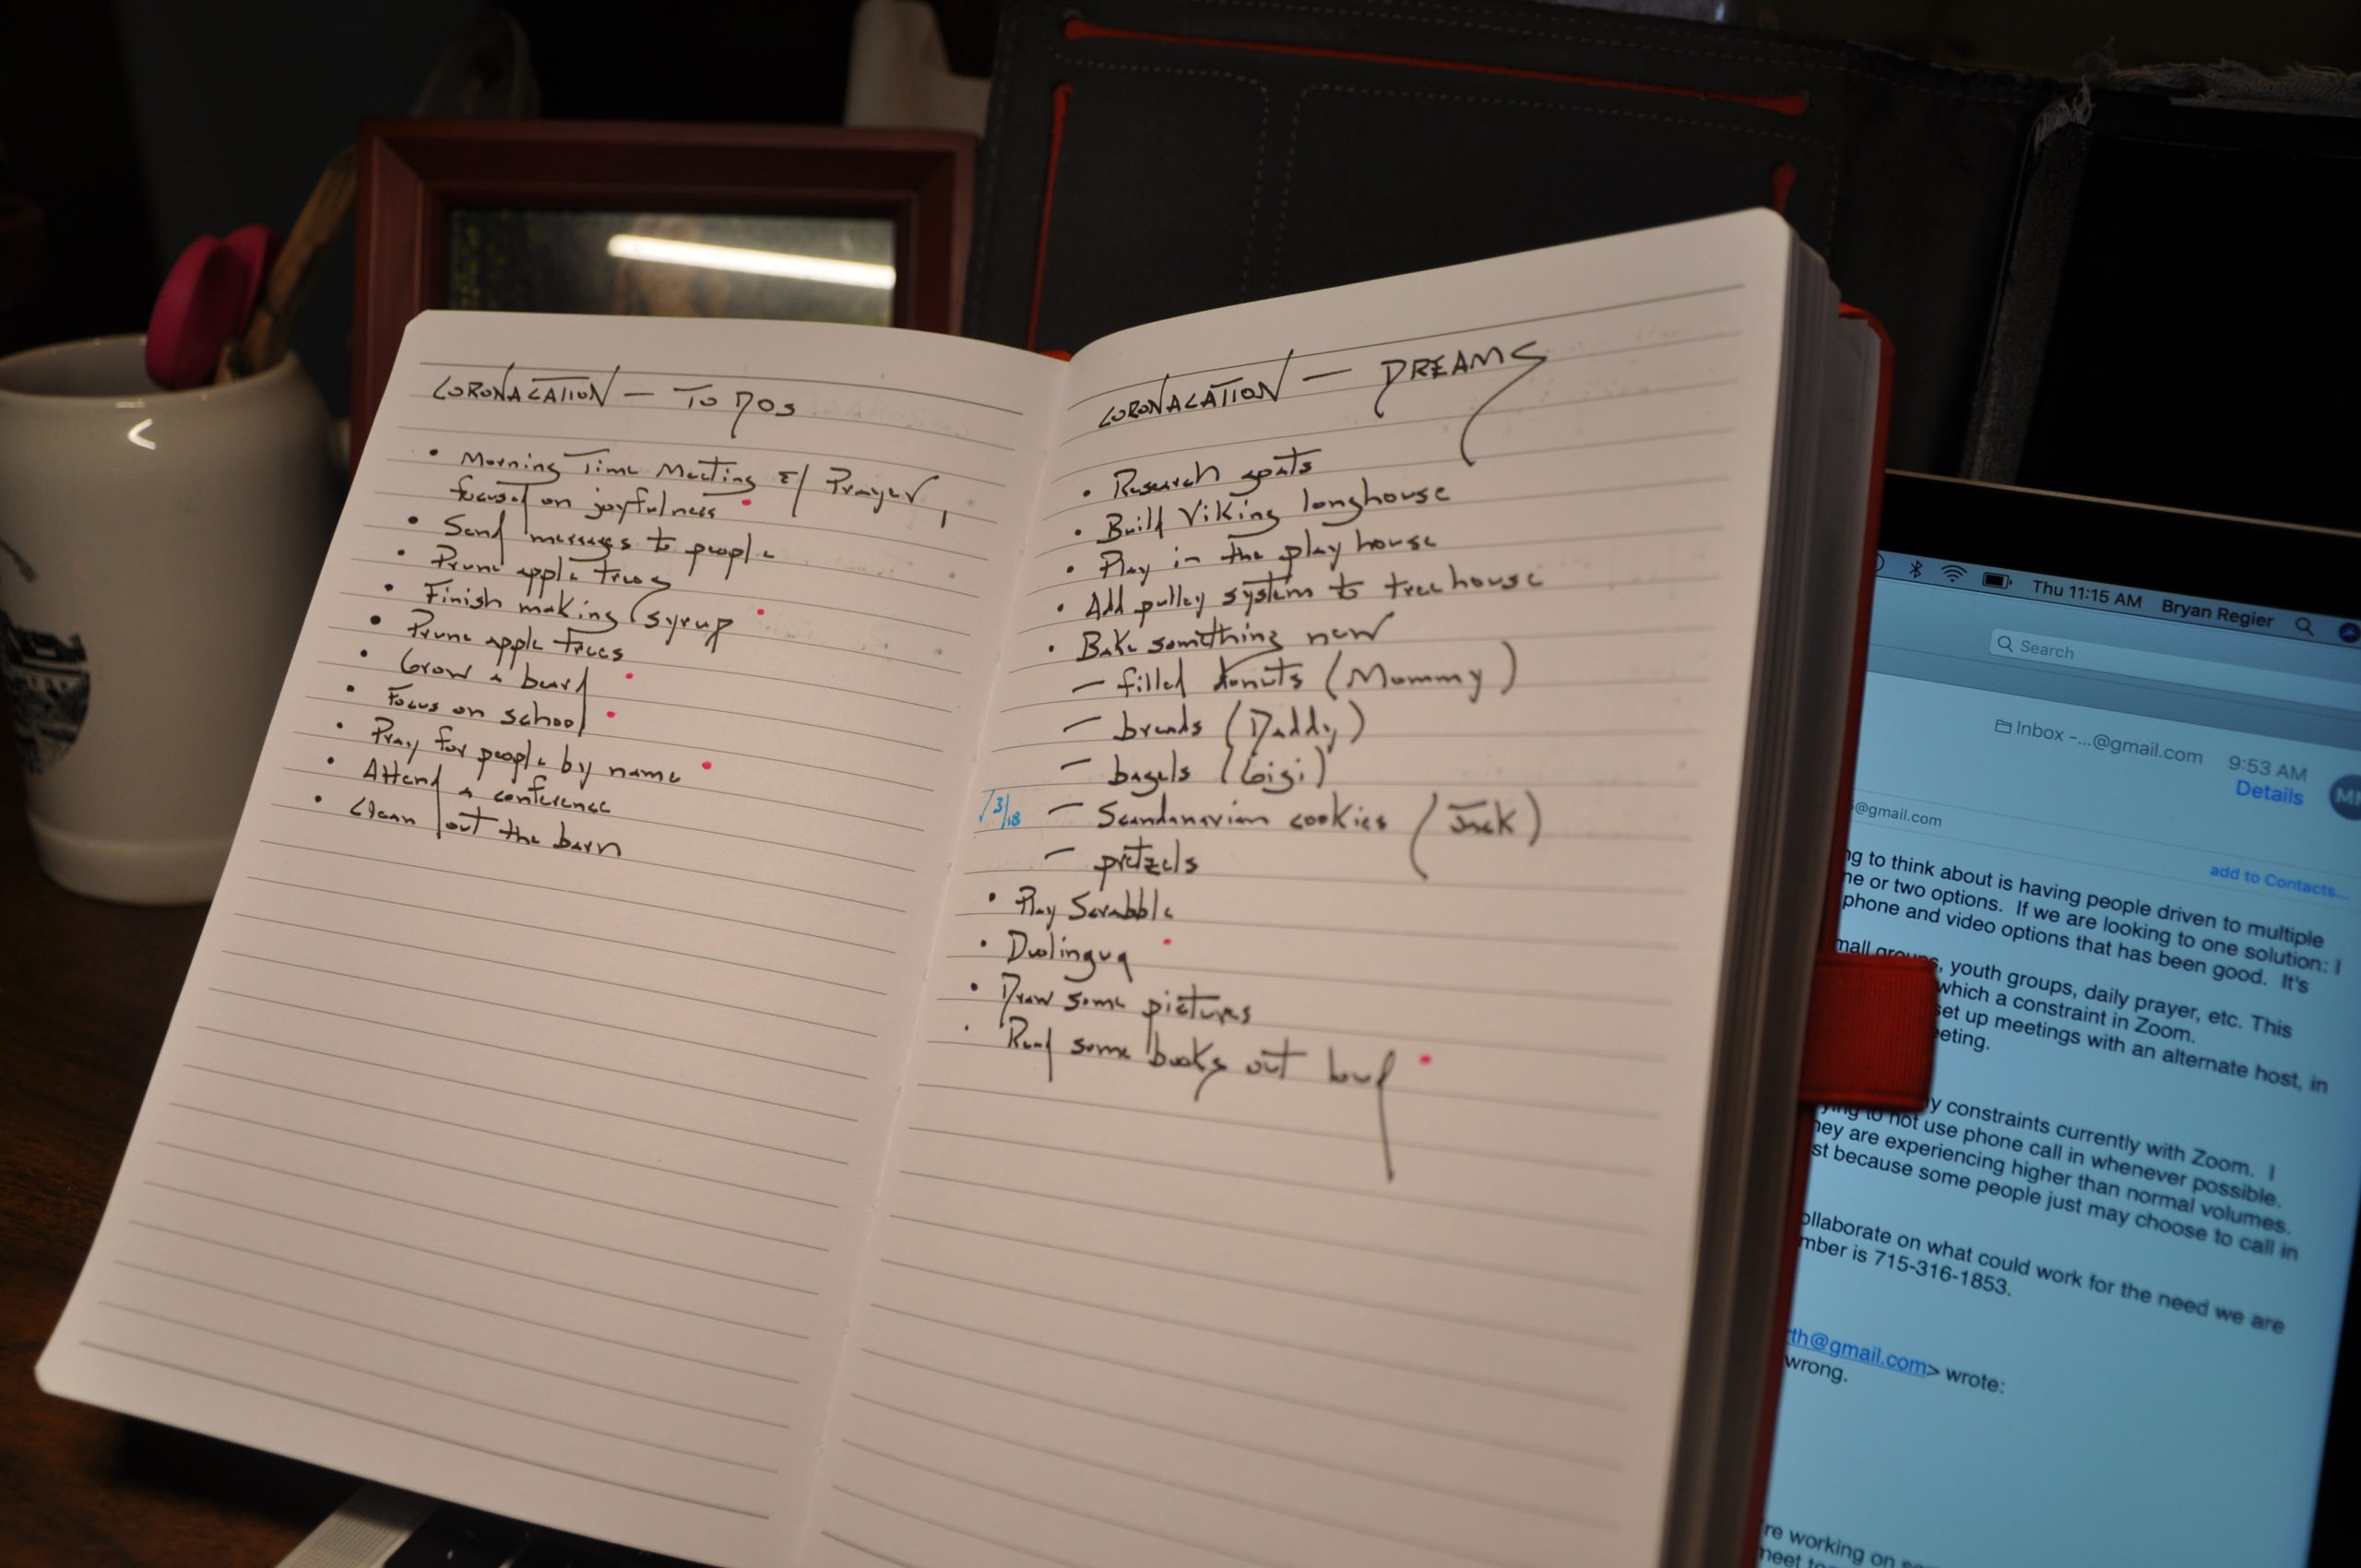 CORONACATION — TO DOS
• Morning Time Meeting & Prayer,
focused on joyfulness
• Send messages to people
• Prune apple trees
• Finish making syrup
• Prune apple trees
• Grow a beard
• Focus on school
• Pray for people by name
• Attend a conference
• Clean out the barn
CORONACATION — DREAMS
• Research goats
• Build Viking longhouse
• Play in the play house
• Add pulley system to treehouse
• Bake something new
— filled donuts (Mommy)
— breads (Daddy)
— bagels (Gigi)
√3/18 — Scandanavian cookies (Jack)
— pretzels
• Play Scrabble
• Duolingua
• Draw some pictures
• Read some books out loud
Thu 11:15 AM Bryan Regier
Search
Inbox -...@gmail.com 9:53 AM
Details
@gmail.com
add to Contacts...
ng to think about is having people driven to multiple
ne or two options. If we are looking to one solution: I
phone and video options that has been good. It's
mall groups, youth groups, daily prayer, etc. This
which a constraint in Zoom.
set up meetings with an alternate host, in
eeting.
y constraints currently with Zoom. I
ying to not use phone call in whenever possible.
hey are experiencing higher than normal volumes.
st because some people just may choose to call in
ollaborate on what could work for the need we are
mber is 715-316-1853.
rth@gmail.com> wrote:
wrong.
re working on
meet